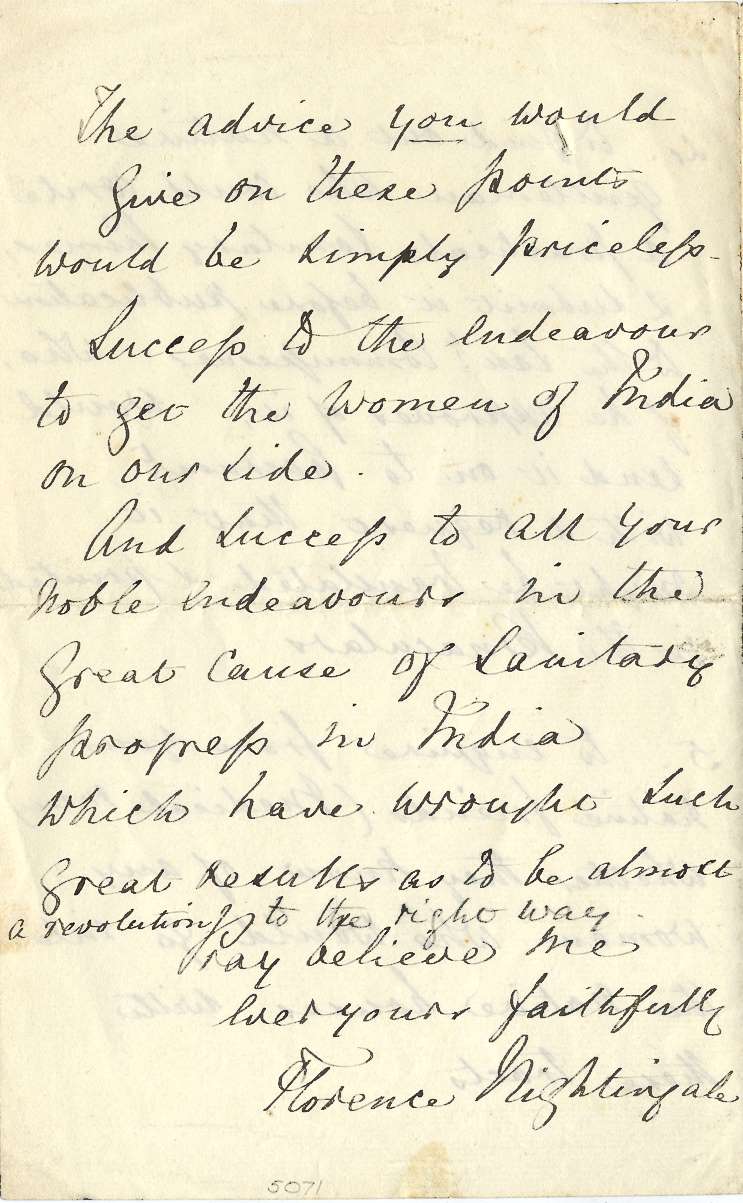 The advice you would
give on these points
would be simply priceless-
Success to the endeavour
to get the women of India
on our side.
And success to all your
noble endeavours in the
great cause of Sanitary
progress in India
which have wrought such
great results as to be almost
a revolution to the right way
Pray believe me
ever yours faithfully
Florence Nightingale
5071